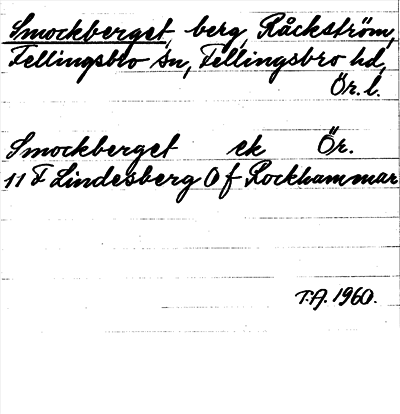 Smockberget, berg, Råckström,
Fellingsbro sn, Fellingsbro hd,
Ör. l.
Smockberget ek Ör.
11 F Lindesberg O f Rockhammar
T.A. 1960.